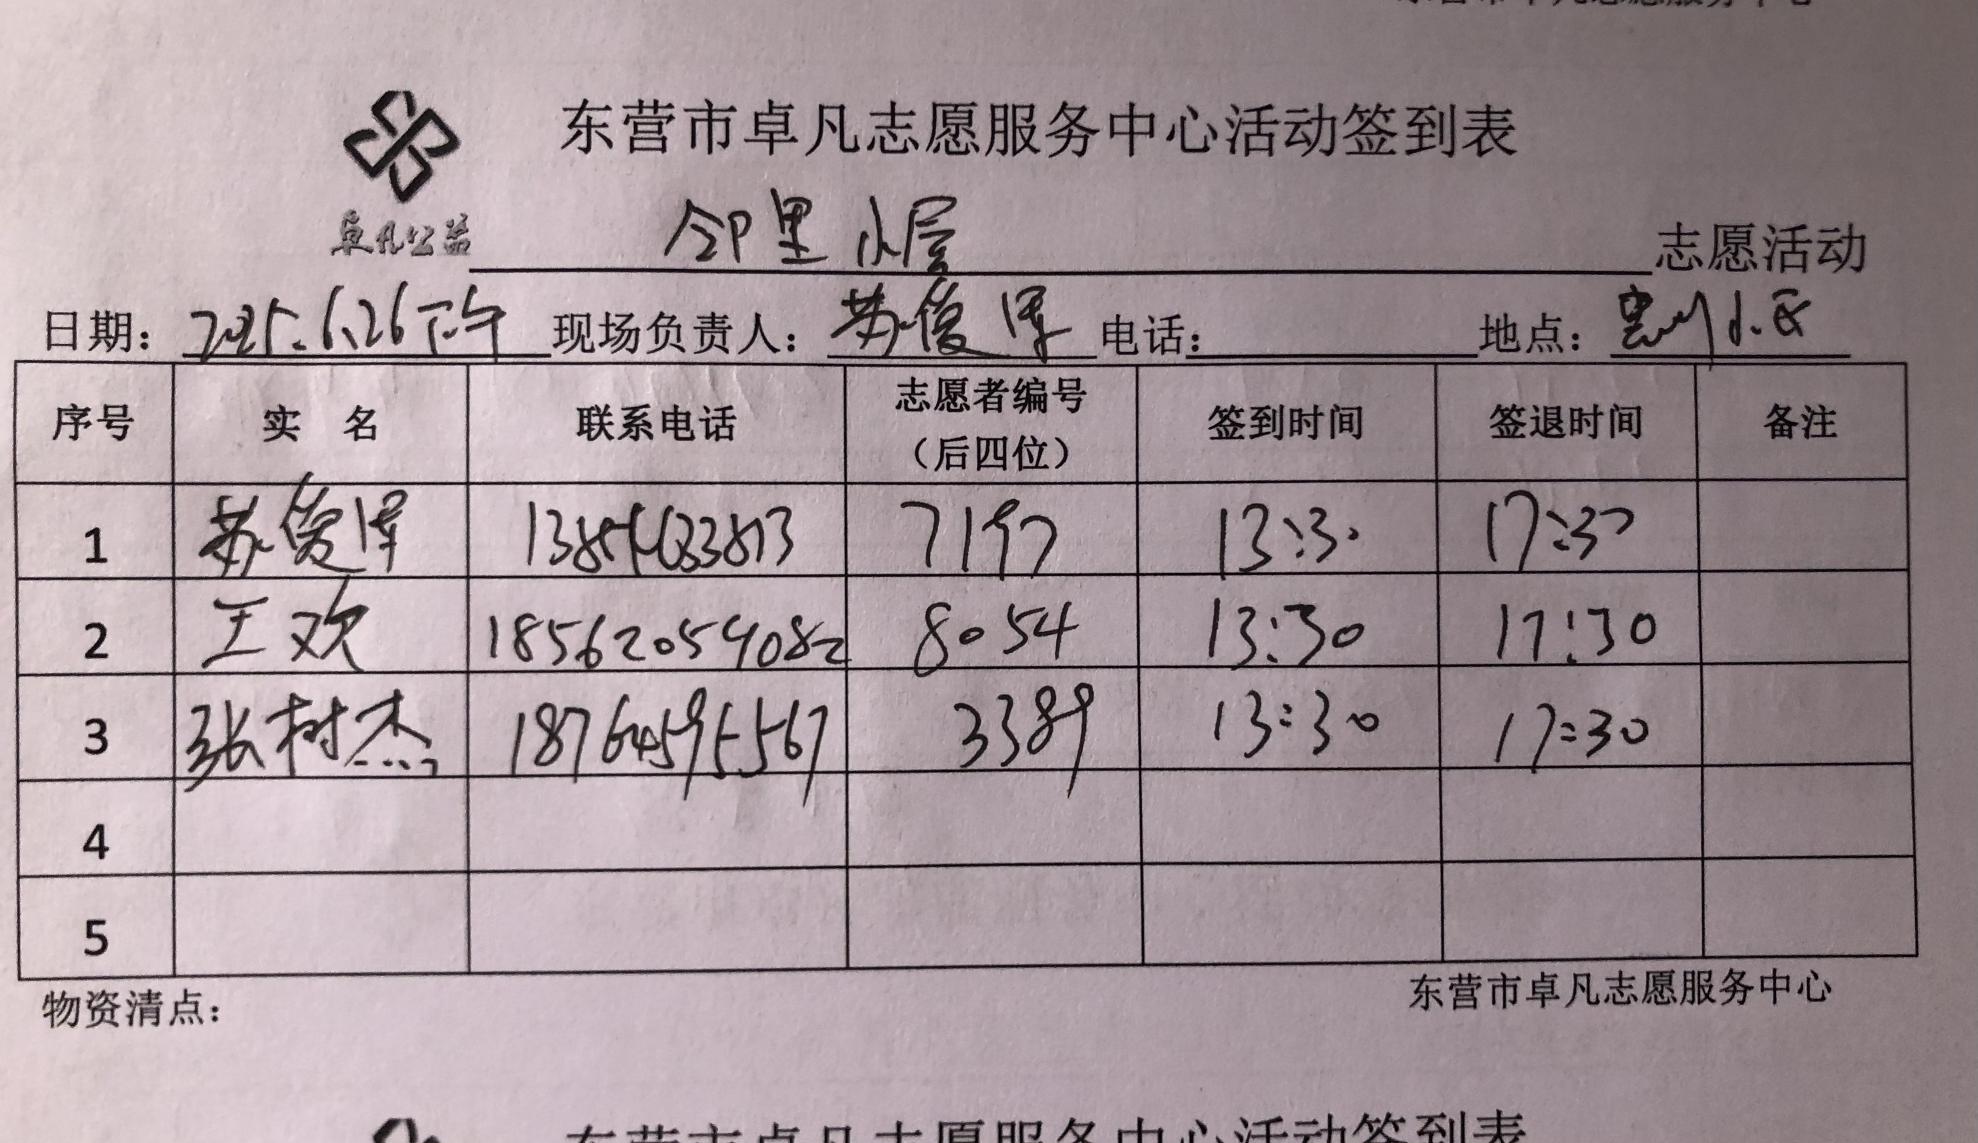 东营市卓凡志愿服务中心
东营市卓凡志愿服务中心活动签到表
卓凡公益 邻里小屋 志愿活动
日期：2025.6.26下午 现场负责人：苏俊泽 电话： 地点：小区
序号 实 名 联系电话 志愿者编号（后四位） 签到时间 签退时间 备注
1 苏俊泽 7197 13:30 17:30
2 王欢 18562054082 8054 13:30 17:30
3 张树杰 18764595567 3389 13:30 17:30
4
5
物资清点： 东营市卓凡志愿服务中心
东营市卓凡志愿服务中心活动签到表